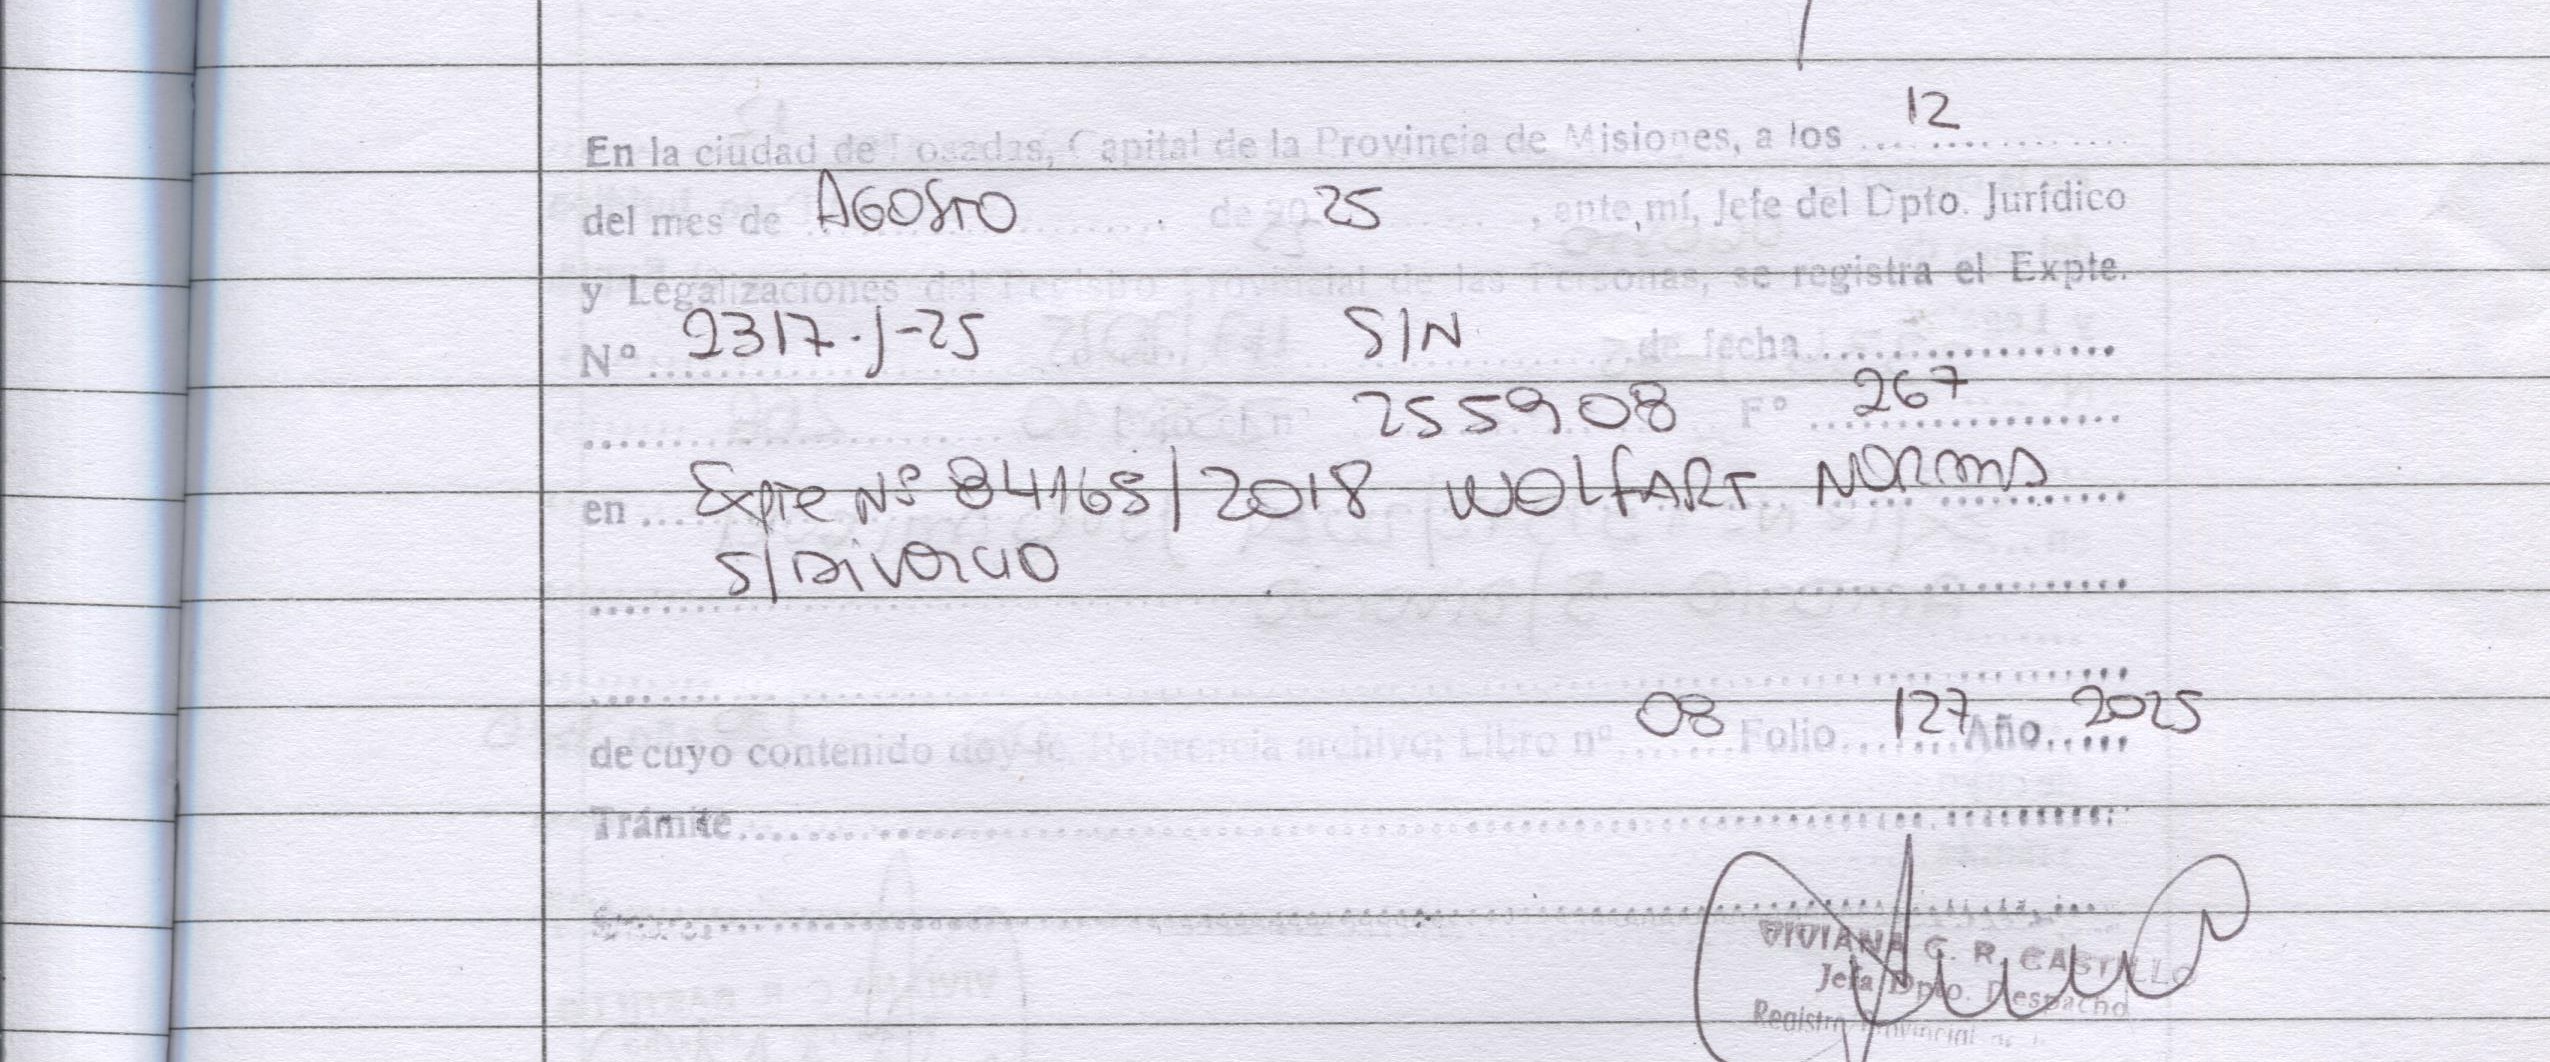 En la ciudad de Posadas, Capital de la Provincia de Misiones, a los 12
del mes de AGOSTO de 20 25, ante mí, Jefe del Dpto. Jurídico
y Legalizaciones del Registro Provincial de las Personas, se registra el Expte.
Nº 2317-J-25 S/N de fecha
255908 Fº 267
en Expte Nº 84165/2018 WOLFART NORMA
S/DIVORCIO
de cuyo contenido doy fe. Referencia archivo: Libro nº 08 Folio 127 Año 2025
Trámite
VIVIANA C. R. CASTILLO
Jefa Dpto. Despacho
Registro Provincial de